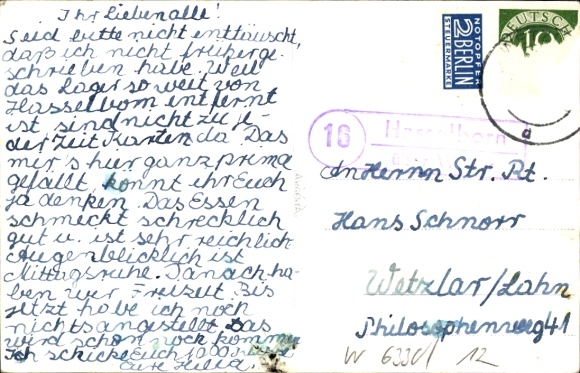 Ihr Lieben alle!
Seid bitte nicht enttäuscht,
daß ich nicht früher ge-
schrieben habe. Weil
das Lager so weit von
Hasselborn entfernt
ist sind nicht zu je-
der Zeit Karten da. Das
mir's hier ganz prima
gefällt, könnt ihr Euch
ja denken. Das Essen
schmeckt schrecklich
gut u. ist sehr reichlich
Augenblicklich ist
Mittagsruhe. Danach ha-
ben wir Freizeit. Bis
jetzt habe ich noch
nichts angestellt. Das
wird schon noch kommen
Ich schicke Euch 1000
Eure
NOTOPFER
2 BERLIN
STEUERMARKE
DEUTSCHE
16
Hasselborn
a
An Herrn Str. Rt.
Hans Schnorr
Wetzlar/Lahn
Philosophenweg 41
12